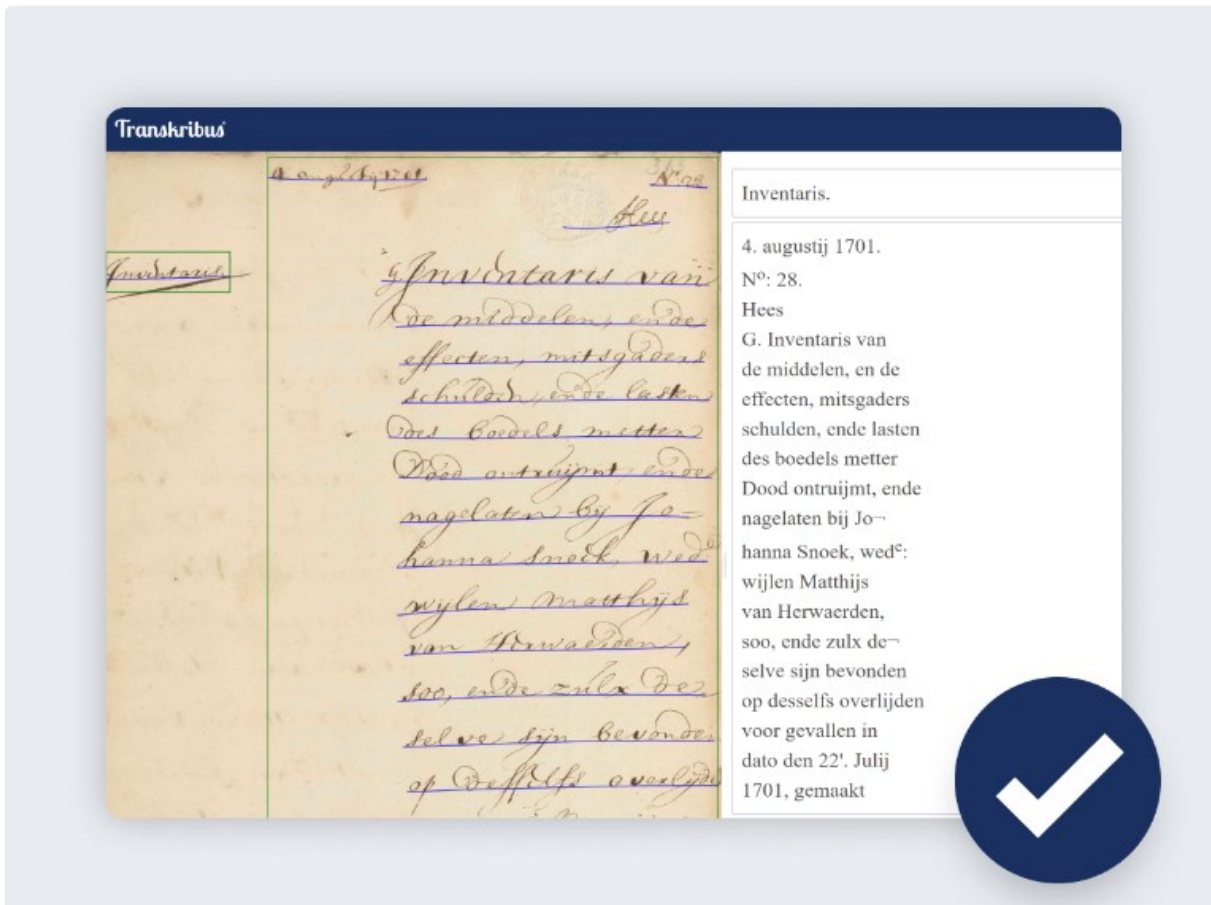 Transkribus
4 augustij 1701
Nº 28
Hees
Inventaris
G Inventaris van
de middelen, ende
effecten, mitsgaders
schulden, ende lasten
des boedels metter
Dood ontruijmt, ende
nagelaten by Jo=
hanna Snoek, wed^e
wijlen Matthijs
van Herwaerden,
soo, ende zulx de
selve sijn bevonden
op desselfs overlijde
Inventaris.
4. augustij 1701.
Nº: 28.
Hees
G. Inventaris van
de middelen, en de
effecten, mitsgaders
schulden, ende lasten
des boedels metter
Dood ontruijmt, ende
nagelaten bij Jo¬
hanna Snoek, wedᵉ:
wijlen Matthijs
van Herwaerden,
soo, ende zulx de¬
selve sijn bevonden
op desselfs overlijden
voor gevallen in
dato den 22'. Julij
1701, gemaakt